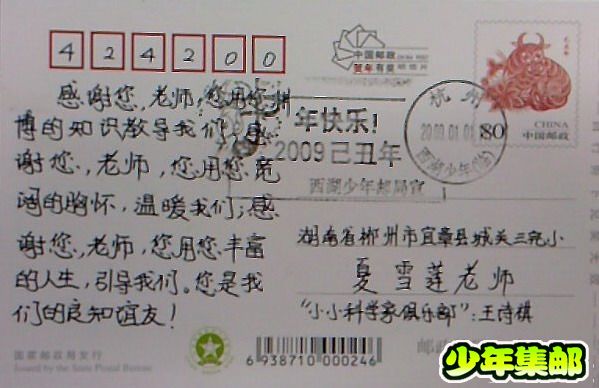 424200
中国邮政
贺年有奖
明信片
感谢您,老师,您用您渊
博的知识教导我们;感
谢您,老师,您用您宽
阔的胸怀,温暖我们;感
谢您,老师,您用您丰富
的人生,引导我们。您是我
们的良知谊友!
年快乐!
2009己丑年
西湖少年邮局宣
杭州
2009.01.01
西湖少年(临)
80
CHINA
中国邮政
湖南省郴州市宜章县城关三完小
夏雪莲老师
“小小科学家俱乐部”:王诗棋
国家邮政局发行
Issued by the State Postal Bureau
6 938710 000246
少年集邮